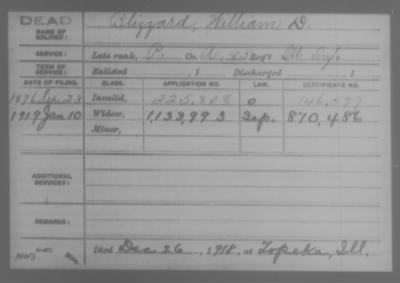 DEAD
NAME OF SOLDIER: Blizzard, William D.
SERVICE: Late rank, P. Co. Reg't Inf.
TERM OF SERVICE: Enlisted , 1 Discharged , 1
DATE OF FILING. CLASS. APPLICATION NO. LAW. CERTIFICATE NO.
1876 Sep 23 Invalid, 225,808 146,577
1919 Jan 10 Widow, 1,133,993 Sep. 870,486
Minor,
ADDITIONAL SERVICES:
REMARKS:
Died Dec. 26, 1918, at Topeka, Ill.